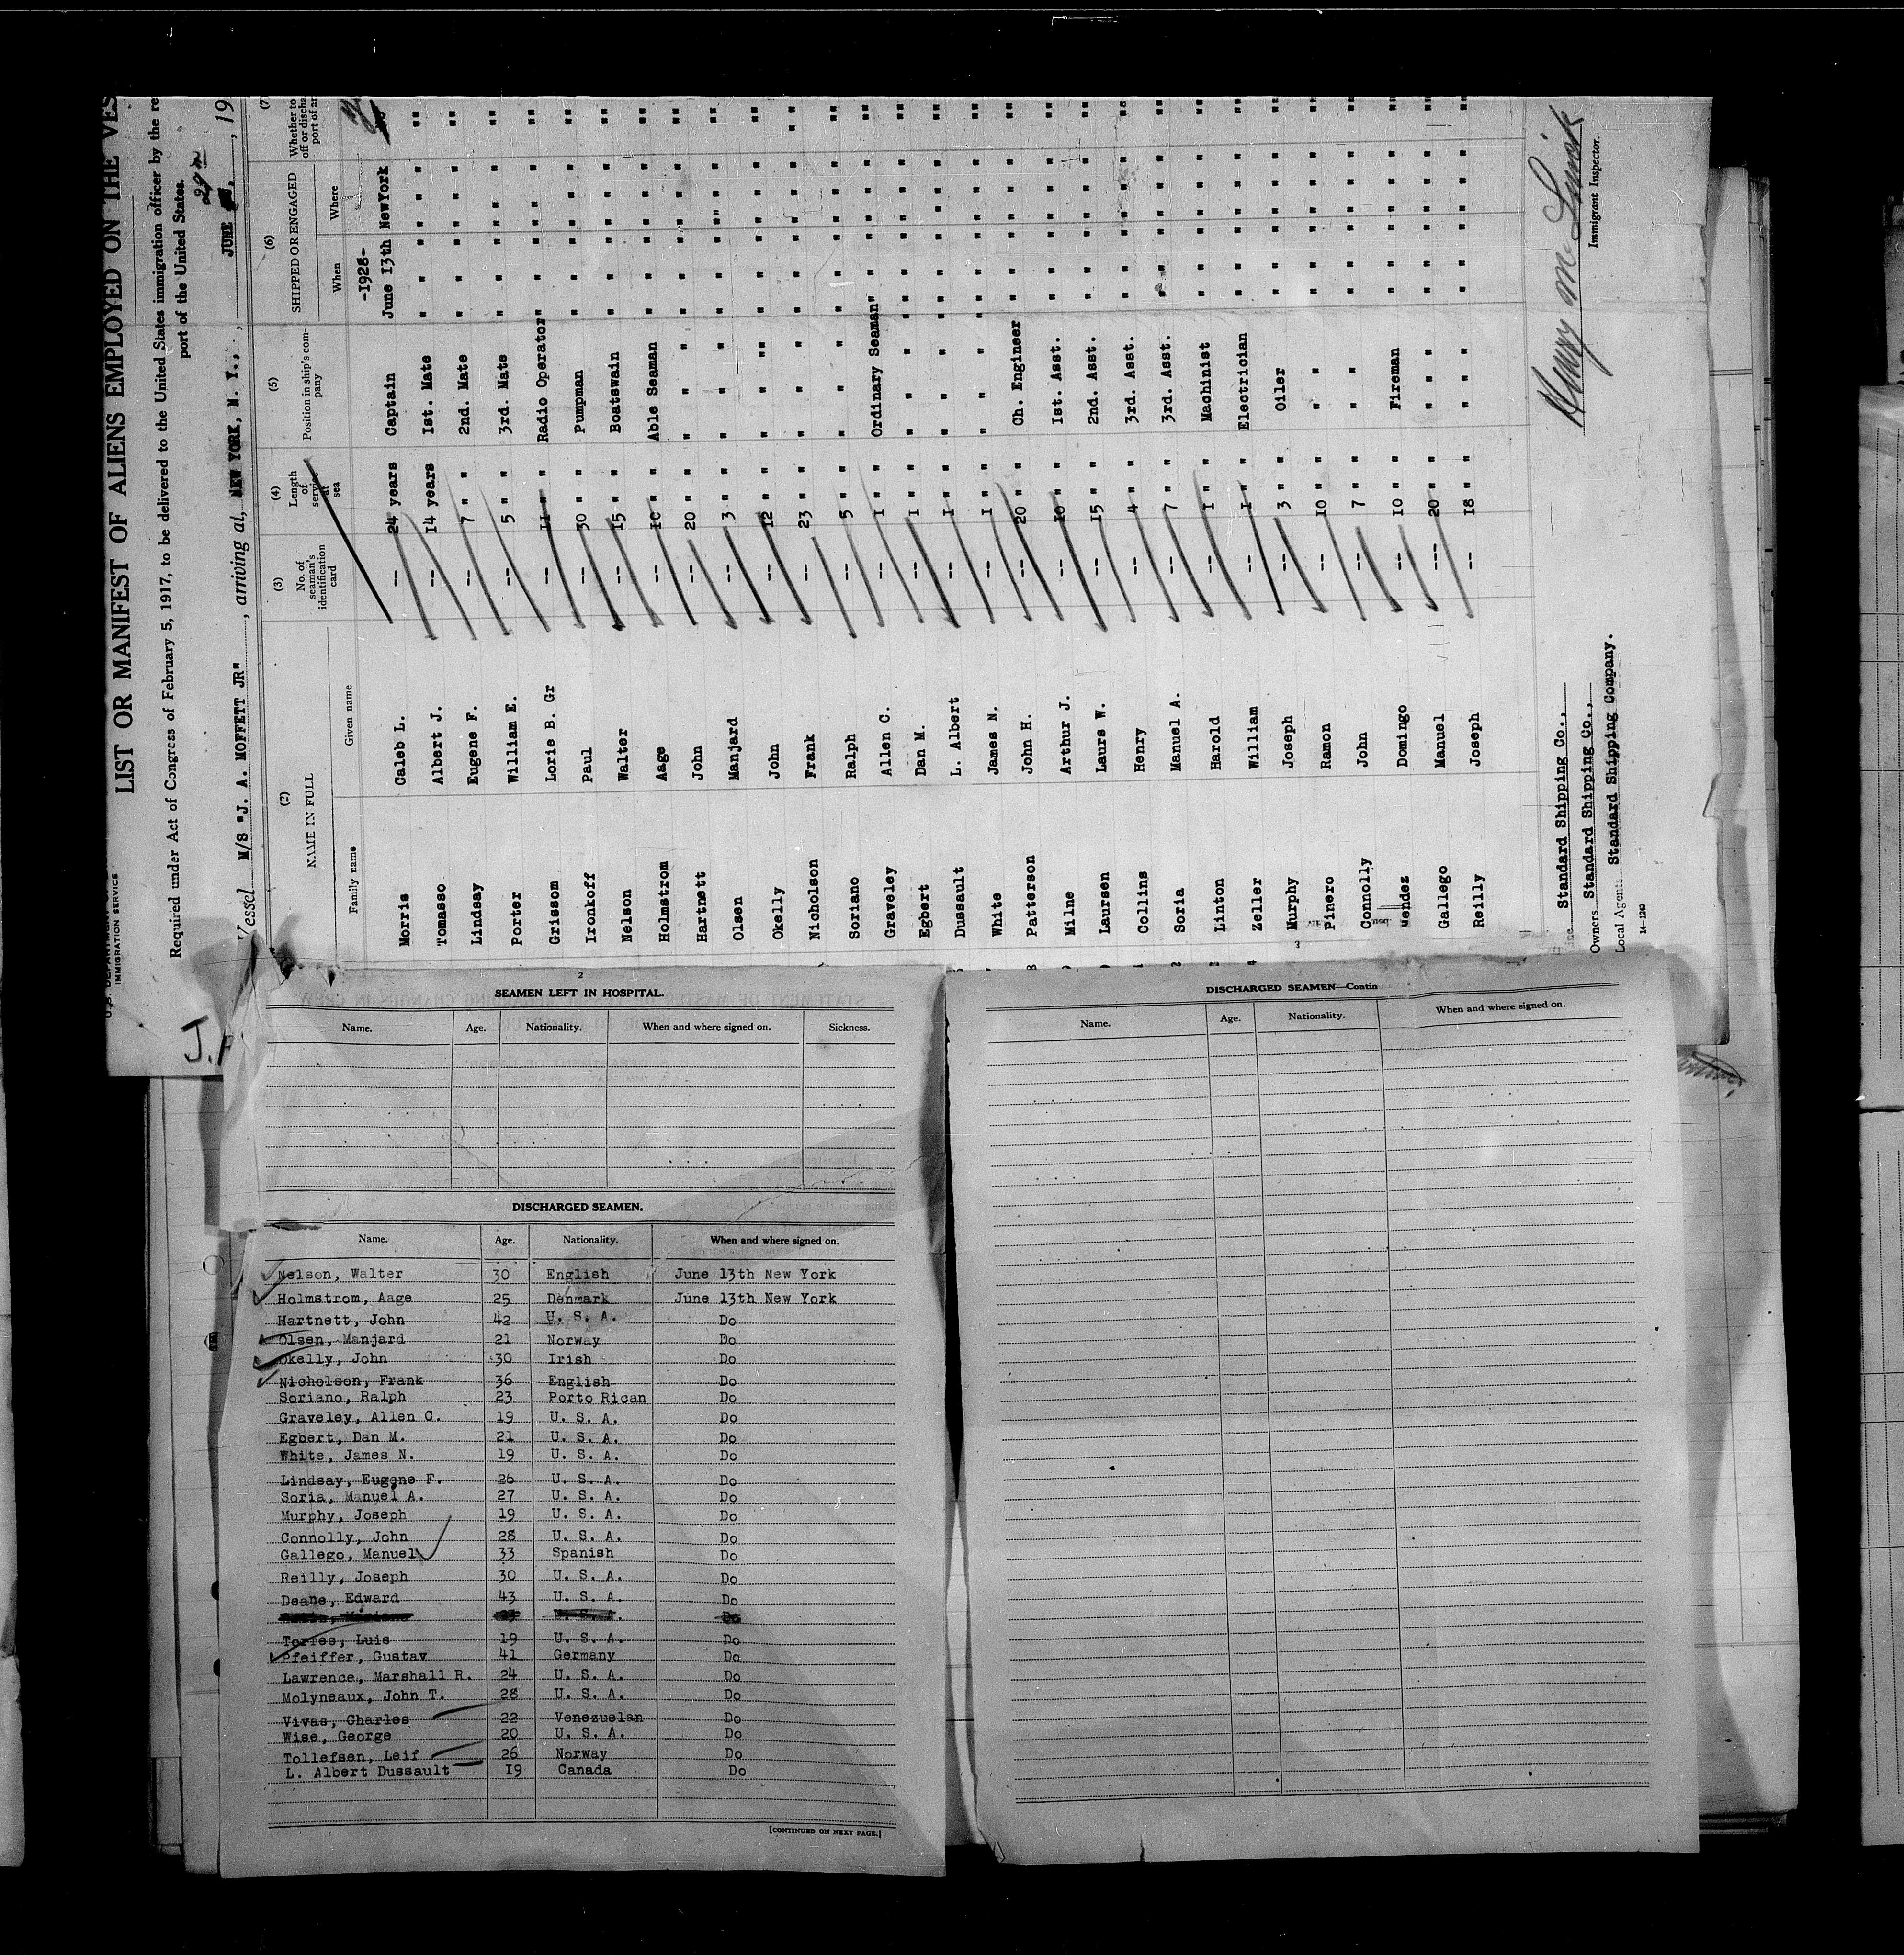 U.S. DEPARTMENT OF
IMMIGRATION SERVICE
LIST OR MANIFEST OF ALIENS EMPLOYED ON THE VES
Required under Act of Congress of February 5, 1917, to be delivered to the United States immigration officer by the re
port of the United States.
Vessel M/S "J. A. MOFFETT JR", arriving at, NEW YORK, N. Y., JUNE 29th, 19
(2) (3) (4) (5) (6) (7)
NAME IN FULL No. of seaman's identification card Length of service at sea Position in ship's company SHIPPED OR ENGAGED Whether to
off or discha
port of ar
Family name Given name When Where
-1928-
Morris Caleb L. -- 24 years Captain June 13th NewYork
Tomasso Albert J. -- 14 years 1st. Mate " " " " " ""
Lindsay Eugene F. -- 7 " " 2nd. Mate " " " " " ""
Porter William E. -- 5 " " 3rd. Mate " " " " " ""
Grissom Lorie B. Gr -- 11 " Radio Operator" " " " " " ""
Ironkoff Paul -- 30 " " Pumpman " " " " " ""
Nelson Walter -- 15 " " Boatswain " " " " " ""
Holmstrom Aage -- 10 " " Able Seaman " " " " " ""
Hartnett John -- 20 " " " " " " " " " ""
Olsen Manjard -- 3 " " " " " " " " " ""
Okelly John -- 12 " " " "" " " " " " ""
Nicholson Frank -- 23 " " " " " " " " " " "
Soriano Ralph -- 5 " " " " " " " " " ""
Graveley Allen C. -- 1 " " Ordinary Seaman" " " " " " ""
Egbert Dan M. -- 1 " " " " " " " " " ""
Dussault L. Albert -- 1 " " " " " " " " " ""
White James N. -- 1 " " " " " " " " " ""
Patterson John H. -- 20 " " Ch. Engineer " " " " " ""
Milne Arthur J. -- 10 " " 1st. Asst. " " " " " ""
Laursen Laurs W. -- 15 " " 2nd. Asst. " " " " " ""
Collins Henry -- 4 " " 3rd. Asst. " " " " " ""
Soria Manuel A. -- 7 " " 3rd. Asst. " " " " " ""
Linton Harold -- 1 " " Machinist " " " " " ""
Zeller William -- 1 " " Electrician " " " " " ""
Murphy Joseph -- 3 " " Oiler " " " " " ""
Pinero Ramon -- 10 " " " " " " " " " ""
Connolly John -- 7 " " " " " " " " " ""
Mendez Domingo -- 10 " " Fireman " " " " " ""
Gallego Manuel --- 20 " " " " " " " " " ""
Reilly Joseph -- 18 " " " " " " " " " ""
Standard Shipping Co.,
Owners Standard Shipping Co.,
Local Agents Standard Shipping Company.
14-1240
Immigrant Inspector.
2
SEAMEN LEFT IN HOSPITAL.
Name. Age. Nationality. When and where signed on. Sickness.
DISCHARGED SEAMEN.
Name. Age. Nationality. When and where signed on.
Nelson, Walter 30 English June 13th New York
Holmstrom, Aage 25 Denmark June 13th New York
Hartnett, John 42 U. S. A. Do
Olsen, Manjard 21 Norway Do
Okelly, John 30 Irish Do
Nicholson, Frank 36 English Do
Soriano, Ralph 23 Porto Rican Do
Graveley, Allen C. 19 U. S. A. Do
Egbert, Dan M. 21 U. S. A. Do
White, James N. 19 U. S. A. Do
Lindsay, Eugene F. 26 U. S. A. Do
Soria, Manuel A. 27 U. S. A. Do
Murphy, Joseph 19 U. S. A. Do
Connolly, John 28 U. S. A. Do
Gallego, Manuel 33 Spanish Do
Reilly, Joseph 30 U. S. A. Do
Deane, Edward 43 U. S. A. Do
Torres, Luis 19 U. S. A. Do
Pfeiffer, Gustav 41 Germany Do
Lawrence, Marshall R. 24 U. S. A. Do
Molyneaux, John T. 28 U. S. A. Do
Vivas, Charles 22 Venezuelan Do
Wise, George 20 U. S. A. Do
Tollefsen, Leif 26 Norway Do
L. Albert Dussault 19 Canada Do
[CONTINUED ON NEXT PAGE.]
3
DISCHARGED SEAMEN—Contin
Name. Age. Nationality. When and where signed on.